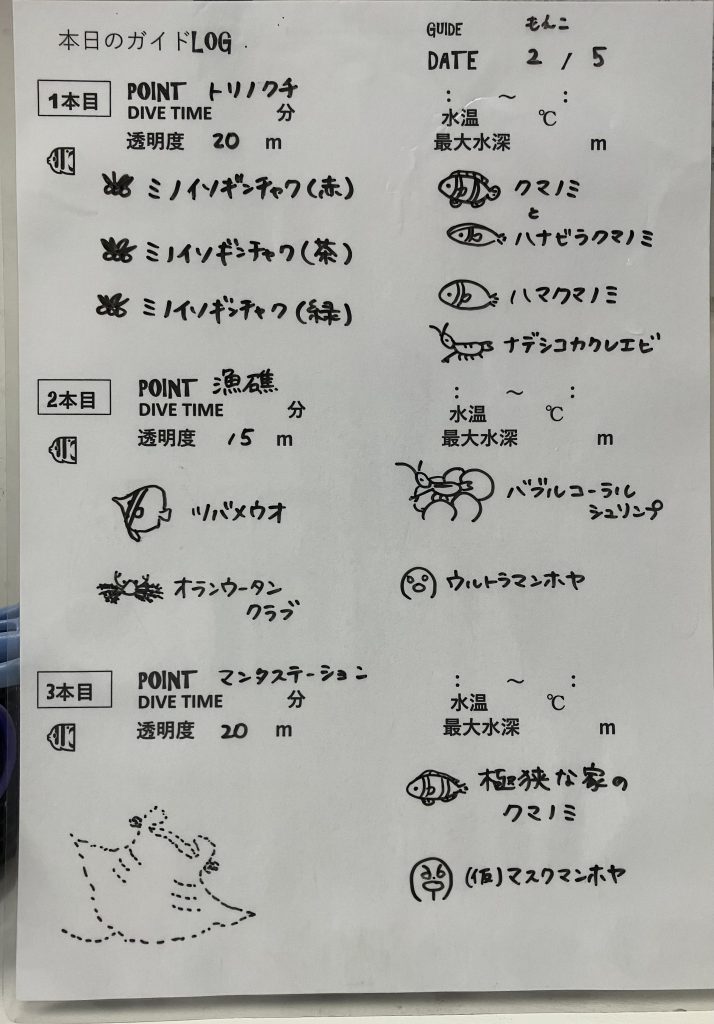 本日のガイドLOG.
GUIDE もんこ
DATE 2 / 5
1本目
POINT トリノクチ
DIVE TIME 分
透明度 20 m
: ～ :
水温 ℃
最大水深 m
ミノイソギンチャク(赤)
ミノイソギンチャク(茶)
ミノイソギンチャク(緑)
クマノミ
と
ハナビラクマノミ
ハマクマノミ
ナデシコカクレエビ
2本目
POINT 漁礁
DIVE TIME 分
透明度 15 m
: ～ :
水温 ℃
最大水深 m
ツバメウオ
オランウータン
クラブ
バブルコーラル
シュリンプ
ウルトラマンホヤ
3本目
POINT マンタステーション
DIVE TIME 分
透明度 20 m
: ～ :
水温 ℃
最大水深 m
極狭な家の
クマノミ
(仮)マスクマンホヤ